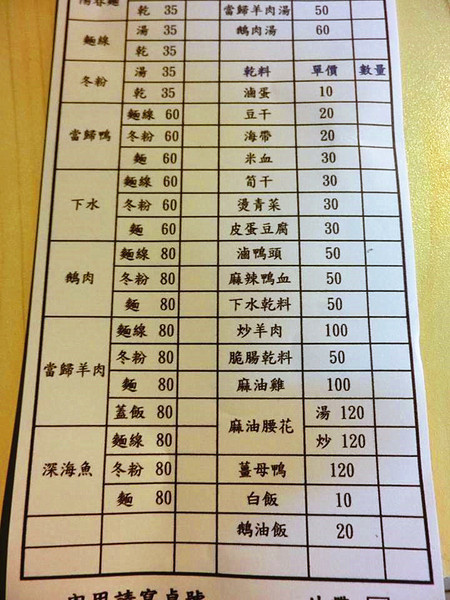 乾 35 當歸羊肉湯 50
麵線 湯 35 鵝肉湯 60
乾 35
冬粉 湯 35 乾料 單價 數量
乾 35 滷蛋 10
當歸鴨 麵線 60 豆干 20
冬粉 60 海帶 20
麵 60 米血 30
下水 麵線 60 筍干 30
冬粉 60 燙青菜 30
麵 60 皮蛋豆腐 30
鵝肉 麵線 80 滷鴨頭 50
冬粉 80 麻辣鴨血 50
麵 80 下水乾料 50
當歸羊肉 麵線 80 炒羊肉 100
冬粉 80 脆腸乾料 50
麵 80 麻油雞 100
蓋飯 80 麻油腰花 湯 120
深海魚 麵線 80 炒 120
冬粉 80 薑母鴨 120
麵 80 白飯 10
鵝油飯 20